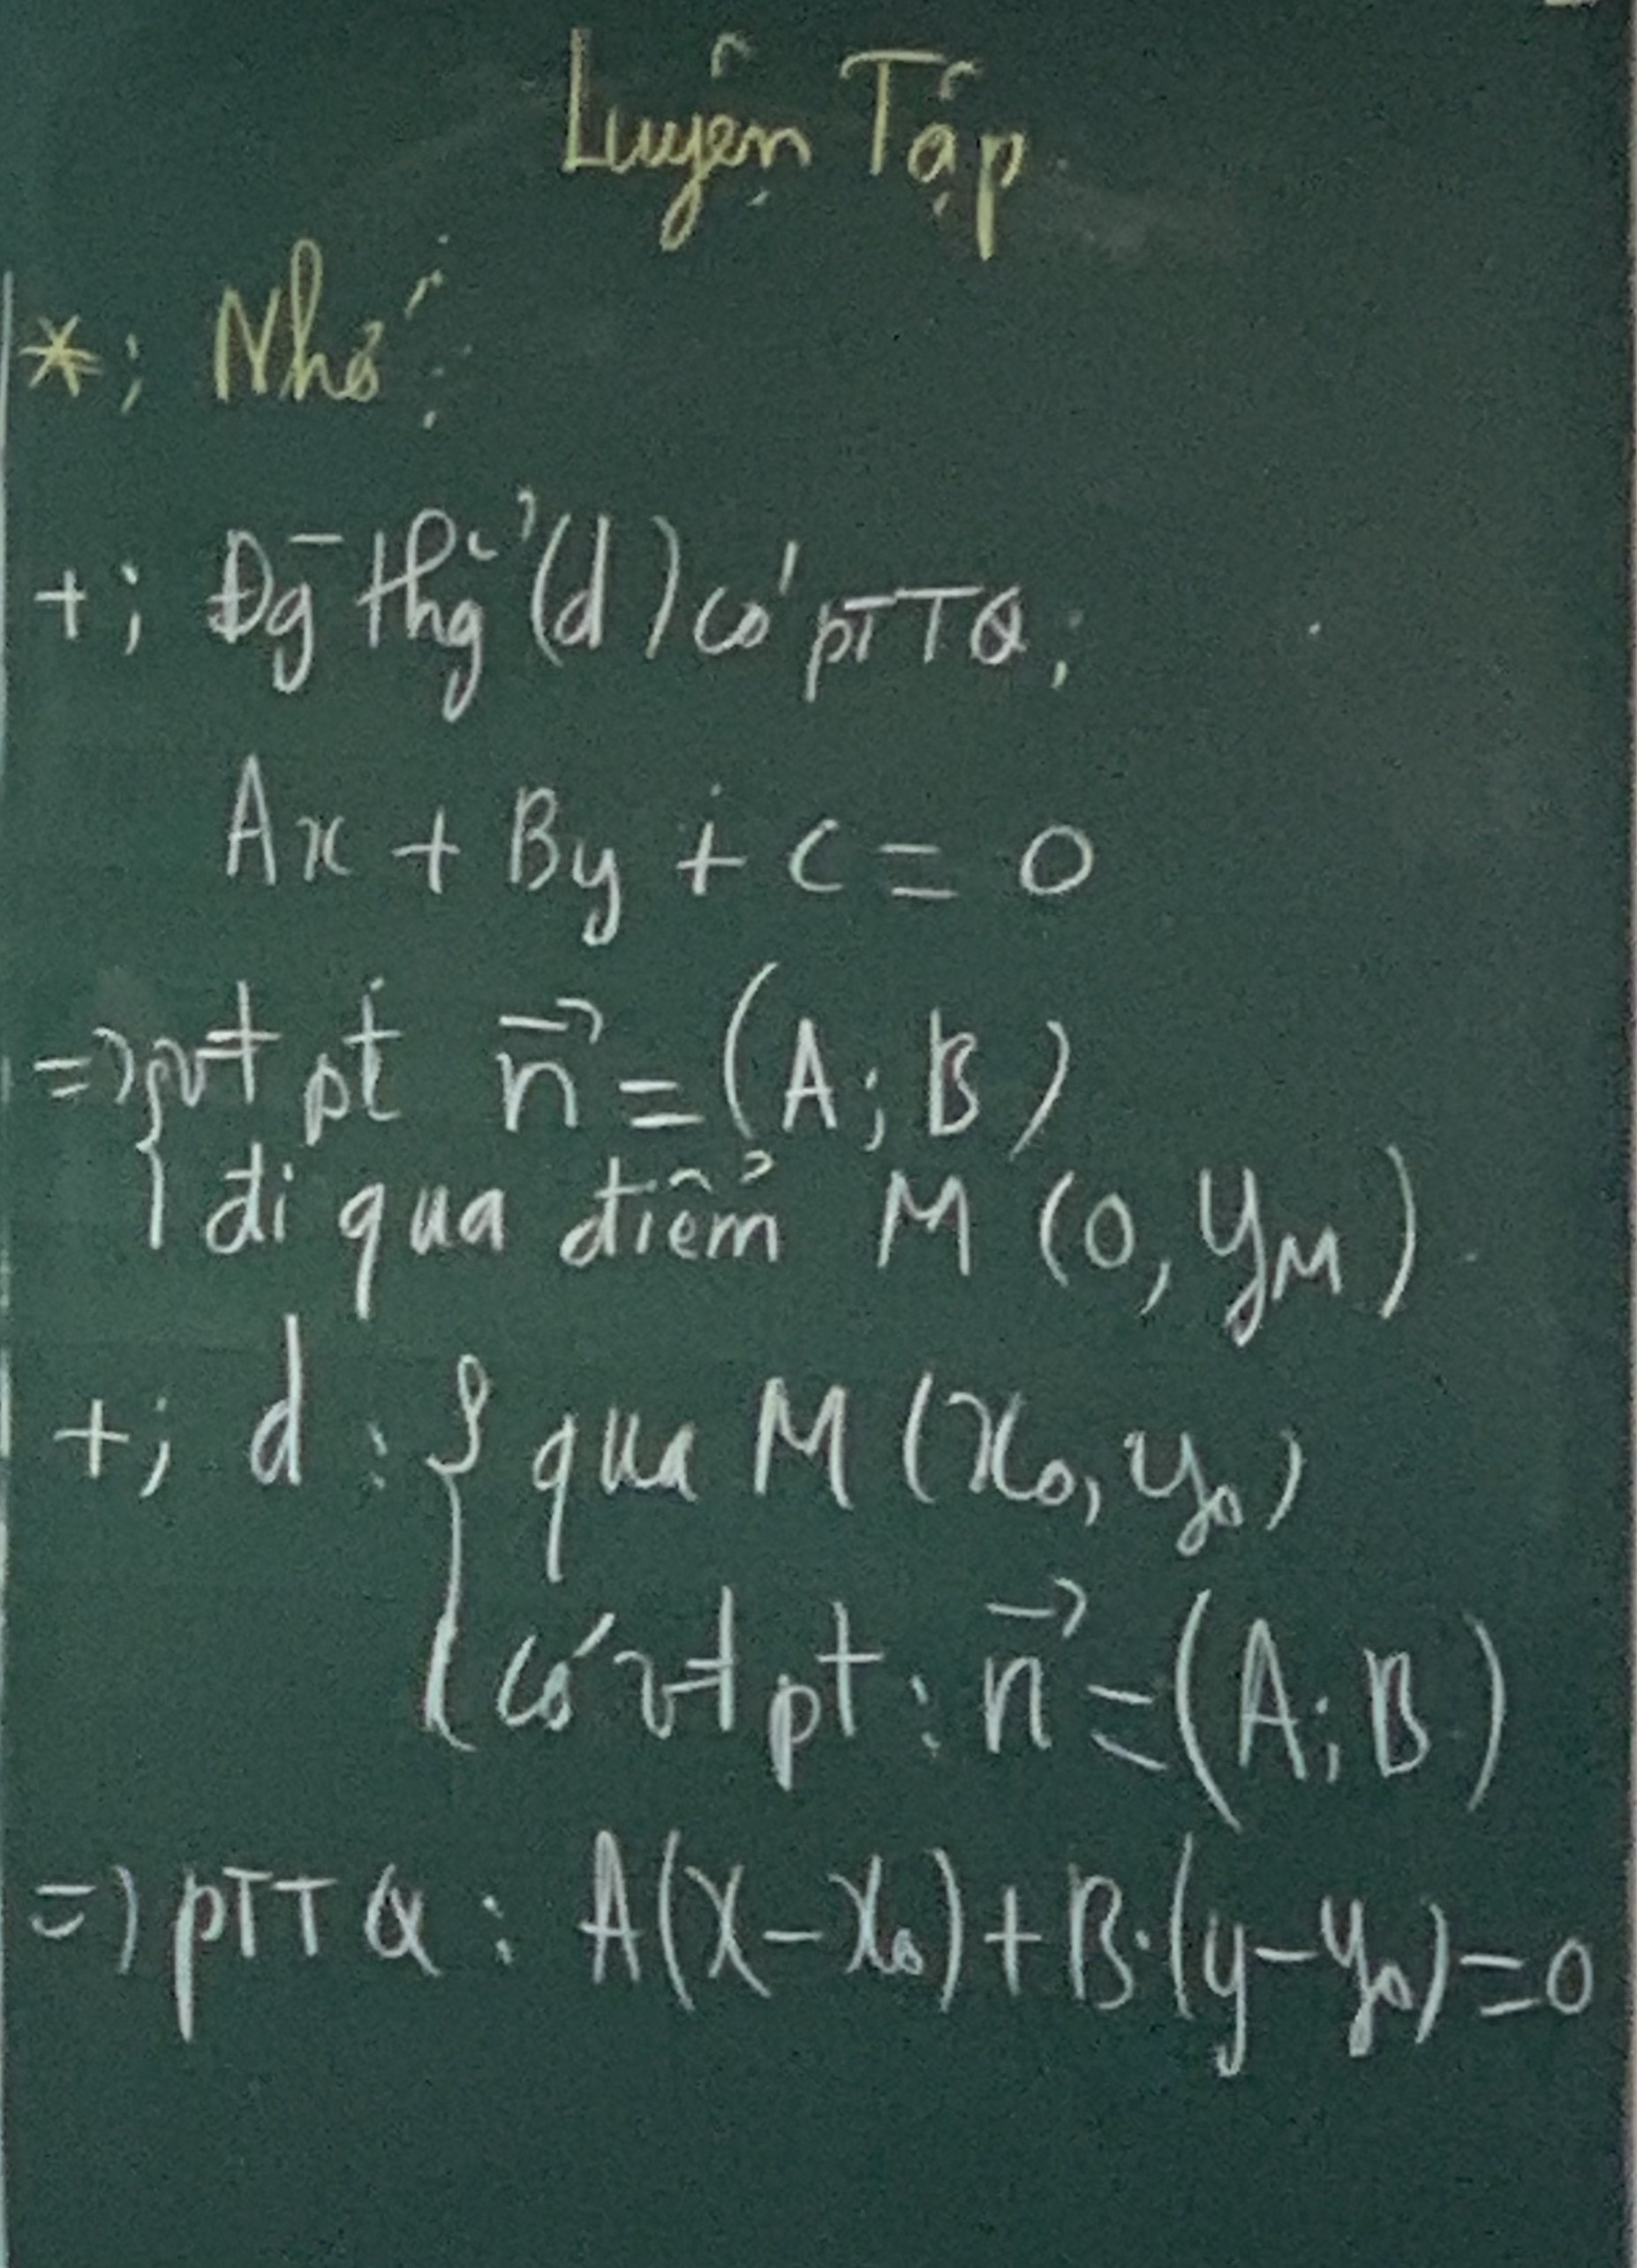 Luyện Tập
*; Nhớ:
+; Đg thg (d) có pTTQ;
Ax + By + C = 0
=> { vt pt n⃗ = (A; B)
đi qua điểm M (0, yM)
+; d : { qua M (x₀, y₀)
có vt pt : n⃗ = (A; B)
=> pTTQ : A(x-x₀)+B.(y-y₀)=0